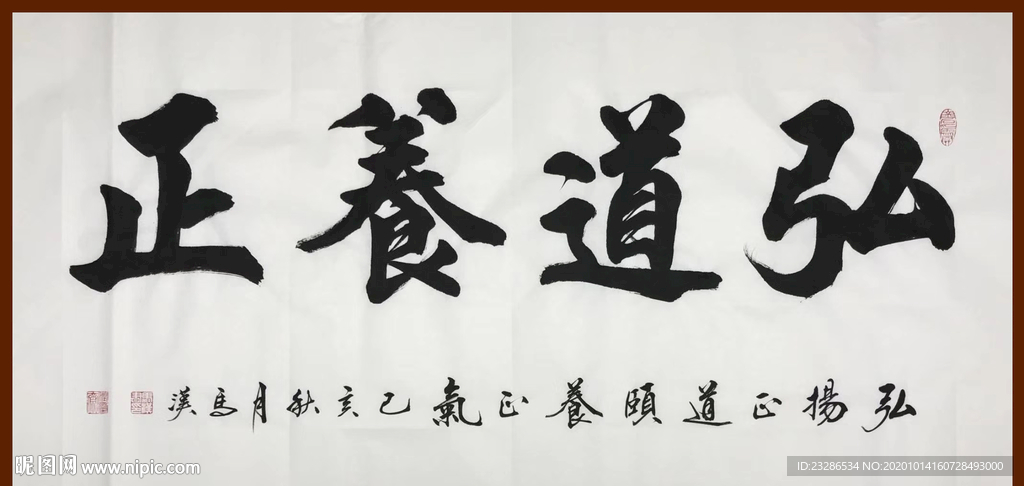 弘道養正
弘揚正道頤養正氣己亥秋月馬漢
昵图网 www.nipic.com
ID:23286534 NO:20201014160728493000